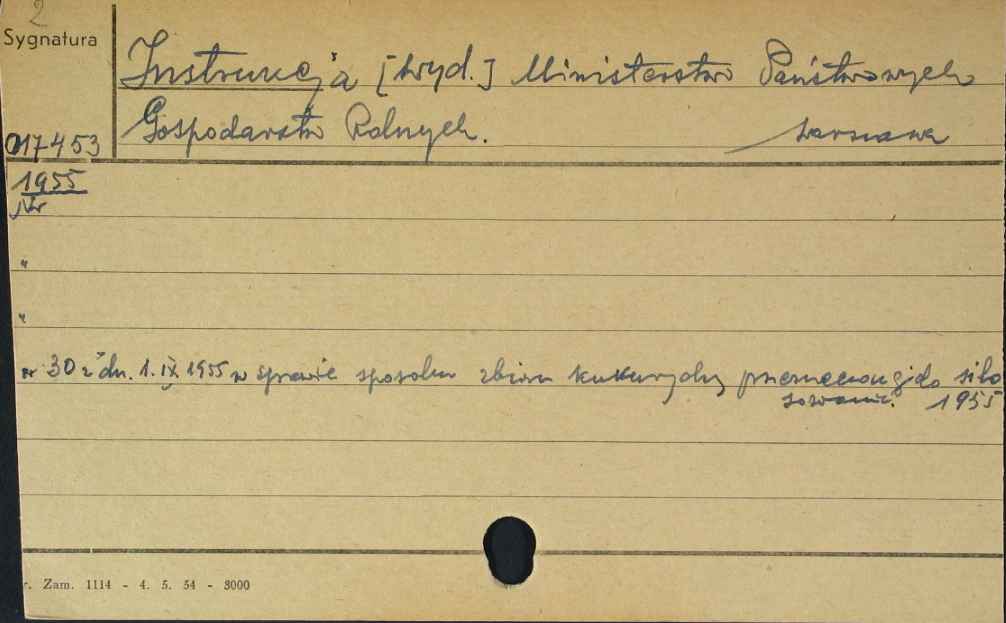 2
Sygnatura
Instrukcja [wyd.] Ministerstwo Państwowych
Gospodarstw Rolnych. Warszawa
017453
1955
Nr
"
"
nr 30 z dn. 1.IX.1955 w sprawie sposobu zbioru kukurydzy przeznaczonej do silo
sowania. 1955
r. Zam. 1114 - 4. 5. 54 - 3000